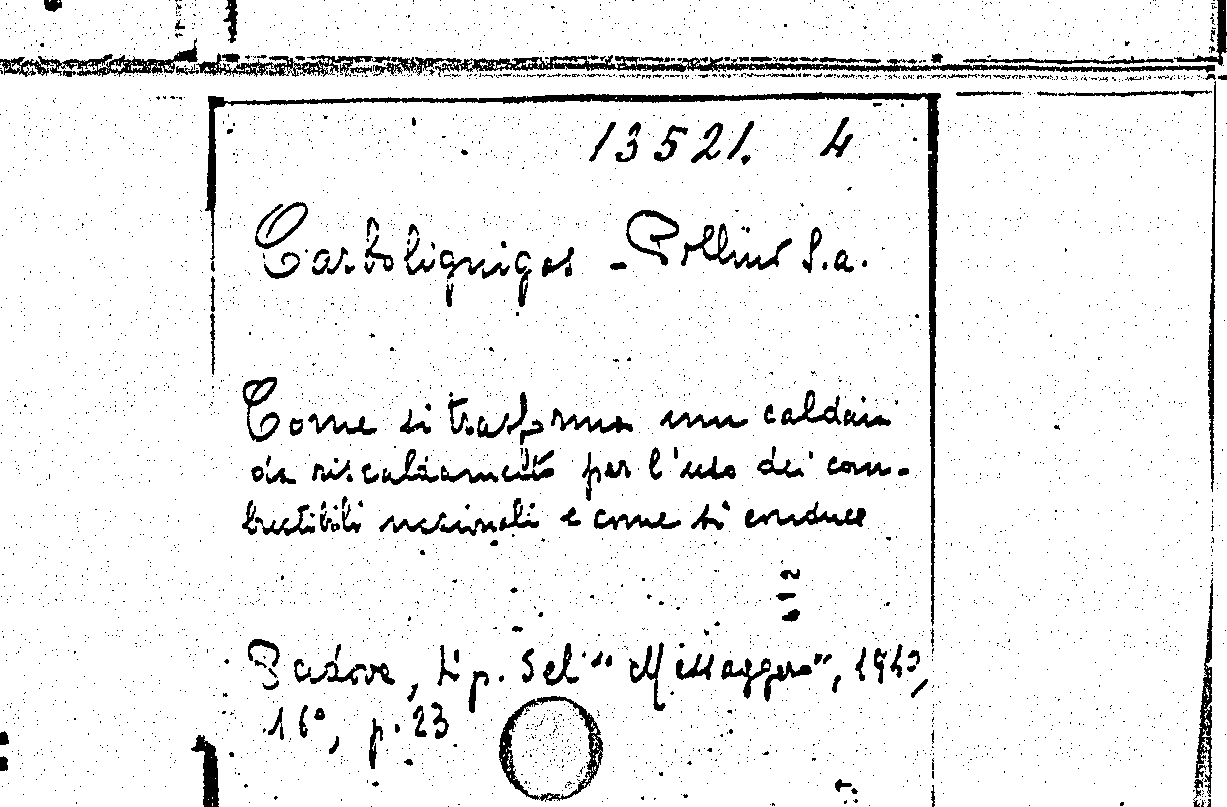 13521. 4
Carbolignigas - Pollini S.a.
Come si trasforma una caldaia
da riscaldamento per l'uso dei com-
bustibili nazionali e come si conduce
Padova, Tip. del "Messaggero",
16°, p. 23